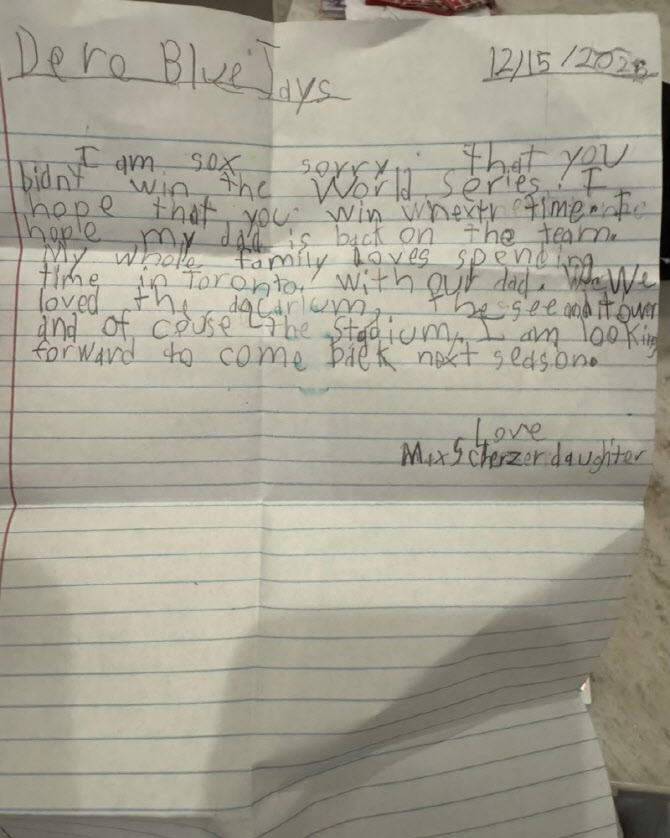 Dero Blue Jays
12/15/2025
I am sox sorry that you
bidnt win the World series. I
hope that you win whextr time. I
hople my dad is back on the team.
My whole family loves spending
time in Toronto. with our dad. We We
loved the aqcarium, the see and it ower
and of couse the stadium. I am looking
forward to come back next season.
Love
Max Scherzer daughter